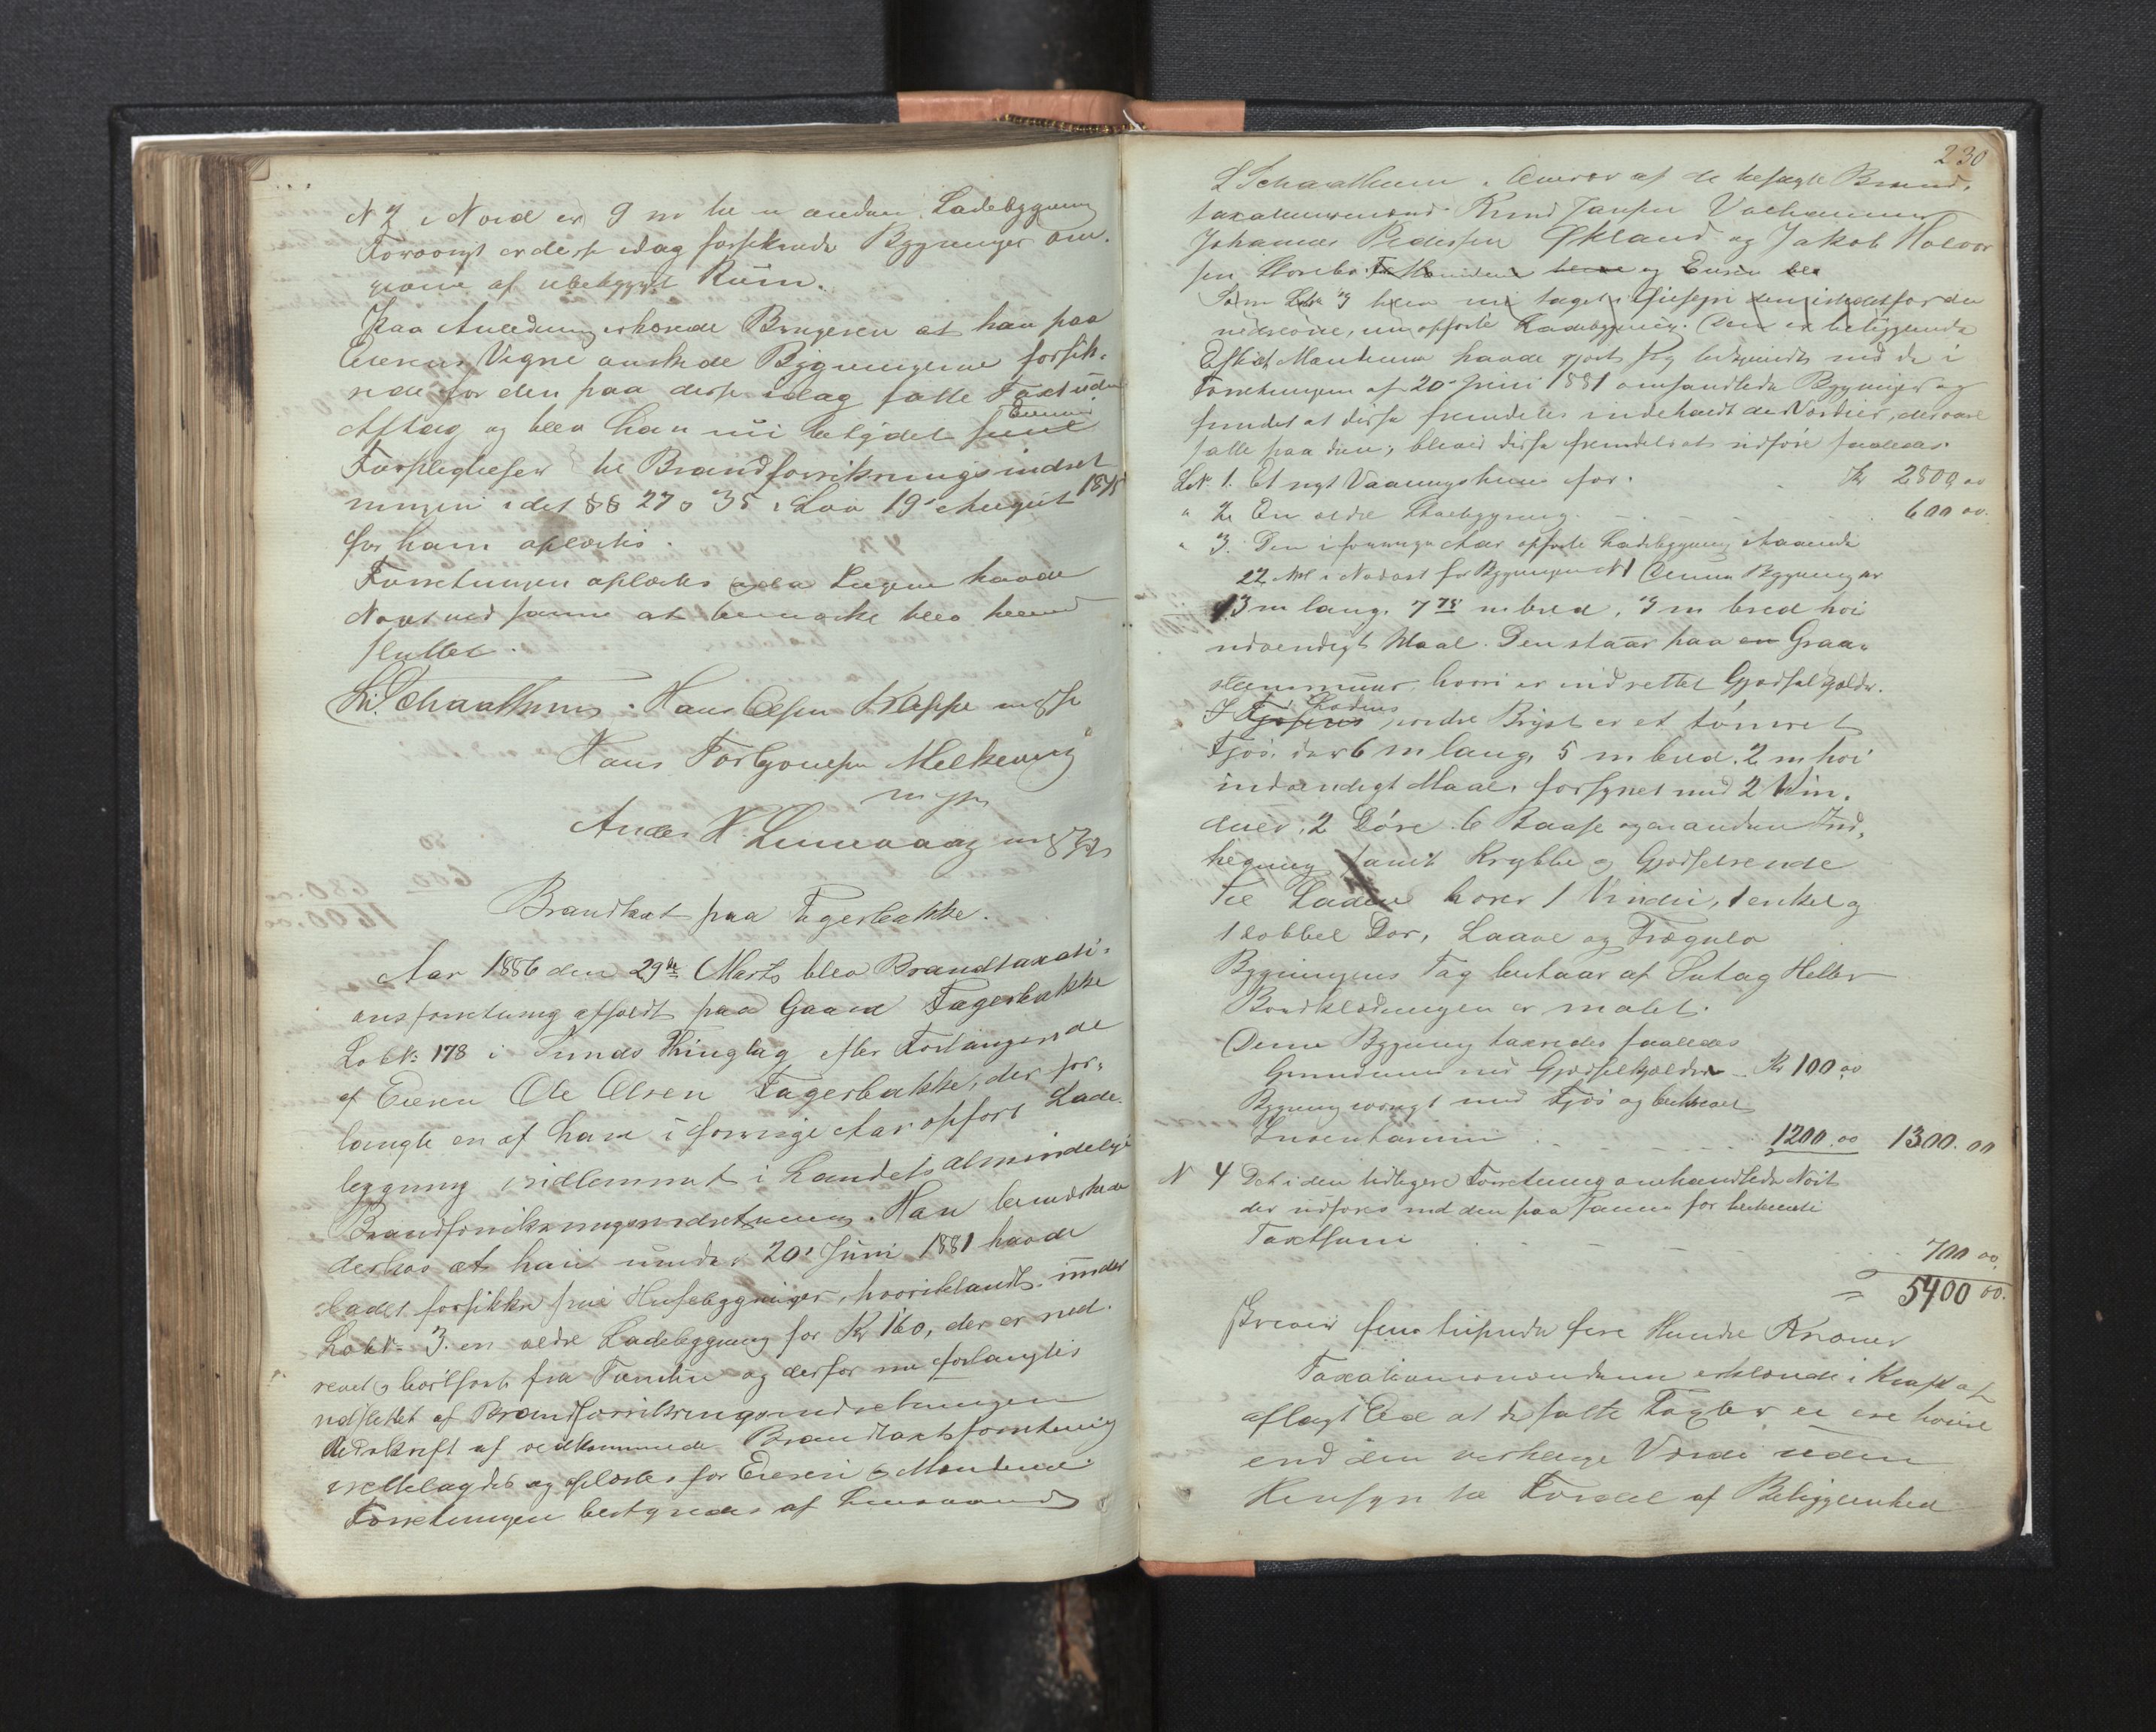 N 2 i Nord er 9 m til en anden Ladebygning
Forøvrigt er disse idag forsikrede Bygninger om-
givne af ubebygget Rum.
Paa Anledning erklærede Brugeren at han paa
Eierens Vegne ønskede Bygningerne forsik-
rede for den paa disse idag satte Taxt uden
Afslag og blev han nu betydet sine Eierens
Forpligtelser til Brandforsikringsindret
ningen idet §§ 27 o 35 i Lov 19 August 1845
for ham oplæstes.
Forretningen oplæstes og da Ingen havde
Noget ved samme at bemærke blev den
sluttet.
L. Schaathun. Hans Olsen Kleppe m. f. P.
Hans Torbjørnsen Melkevig
m. f. P.
Anders N. Limevaag
Brandtaxt paa Fagerbakke.
Aar 1886 den 29de Marts blev Brandtaxati-
onsforretning afholdt paa Gaard Fagerbakke
Lob N: 178 i Sunds Thinglag efter Forlangende
af Eieren Ole Olsen Fagerbakke, der for-
langte en af ham i forrige Aar opført Lade-
bygning indlemmet i Landets almindelige
Brandforsikringsindretning. Han bemærkede
derhos at han under 20 Juni 1881 havde
ladet forsikre sine Husebygninger, hvoriblandt under
Lob N: 3. en ældre Ladebygning for Kr 160, der er ned-
revet & bortført fra Tomten og derfor nu forlangtes
udslettet af Brandforsikringsindretningen
Udskrift af vedkommende Brandtaxtforretning
fremlagdes og oplæstes for Eieren & Mændene
Forretningen bestyredes af Lensmand
230
L Schaathun. Overvær af de besagte Brand-
taxationsmænd Knud Jansen
Johannes Pedersen Økland og Jakob Halvor
sen og Eieren blev
Som Lit 3 blev nu taget i Øiesyn den istedetfor den
nedrevne, nu opførte Ladebygning. Den er beliggende
Efterat Mændene havde gjort sig bekjendt med de i
Forretningen af 20 Juni 1881 omhandlede Bygninger og
fundet at disse fremdeles indeholdt de Værdier, der var
satte paa dem; bleve disse fremdeles at udføre saaledes:
Lit. 1. Et nyt Vaaningshus for. Kr 2800,00
" 2. En ældre Stuebygning. 600 00.
" 3. Den i forrige Aar opførte Ladebygning staaende
22 Met. i Nordost for Bygningen N 1 Denne Bygning er
13 m lang, 7 75 m bred, 3 m bred høi
udvendigt Maal. Den staar paa en Graa-
steensmuur, hvori er indrettet Gjødselkjælder.
I Fjøsens Ladens vendre Bryst er et tømret
Fjøs, der 6 m lang, 5 m bred, 2 m høi
indvendigt Maal, forsynet med 2 Vin-
duer, 2 Døre. 6 Baase og en anden Ind-
hegning samt Krybbe og Gjødselrende
Til Laden hører 1 Vindu, 1 enkel og
1 dobbel Dør, Laave og Trægulv
Bygningens Tag bestaar af Sutag Heller
Bordklædningen er malet.
Denne Bygning taxeredes saaledes
Grundmur med Gjødselkjælder Kr 100,00
Bygning forøvrigt med Fjøs og beskrevet
Inventarium 1200.00 1300.00
N 4 Det i den tidligere Forretning omhandlede Nøst
der udføres med den paa samme for bestemte
Taxtsum 700 00.
= 5400 00.
skriver fem tusinde fire Hundre Kroner
Taxationsmændene erklærede i Kraft af
aflagt Eed at de satte Taxter ei ere høiere
end den virkelige Værdi uden
Hensyn til Fordel af Beliggenhed